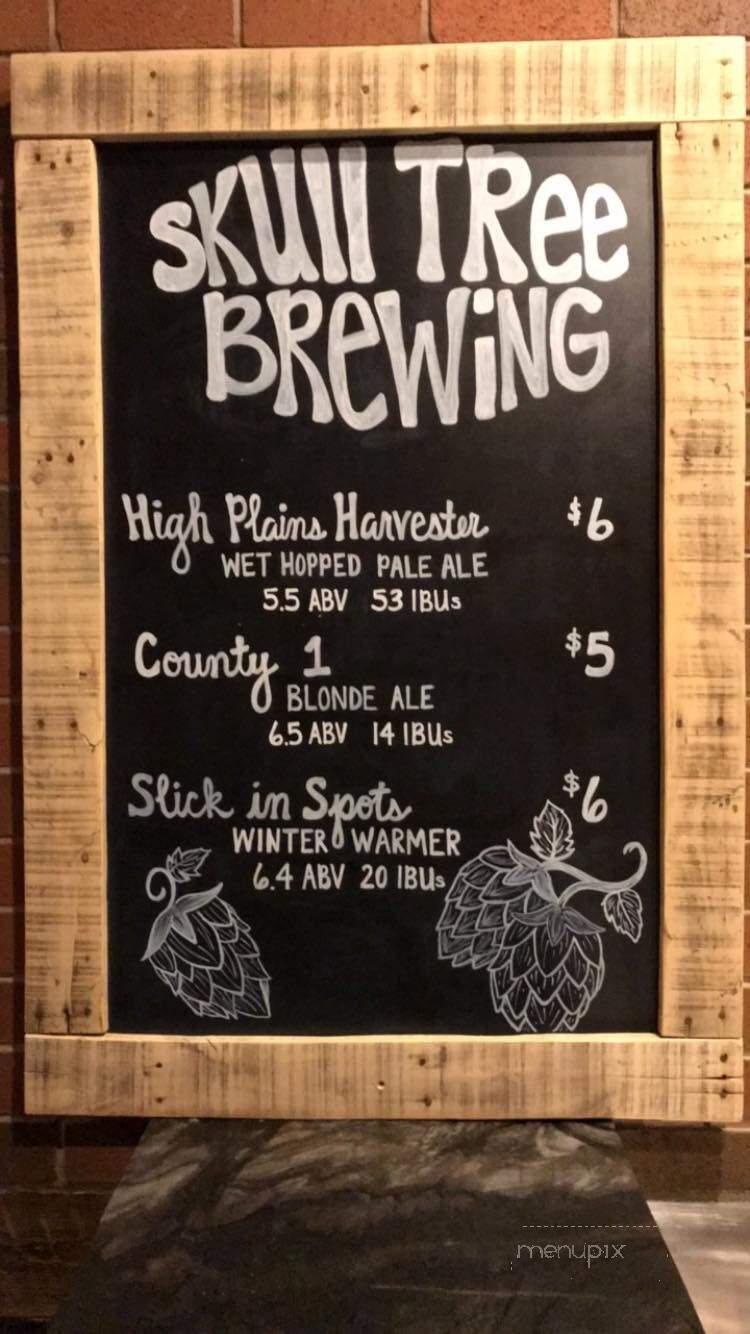 SKUll TRee
BReWiNG
High Plains Harvester $6
WET HOPPED PALE ALE
5.5 ABV 53 IBUs
County 1 $5
BLONDE ALE
6.5 ABV 14 IBUs
Slick in Spots $6
WINTER WARMER
6.4 ABV 20 IBUs
menupix